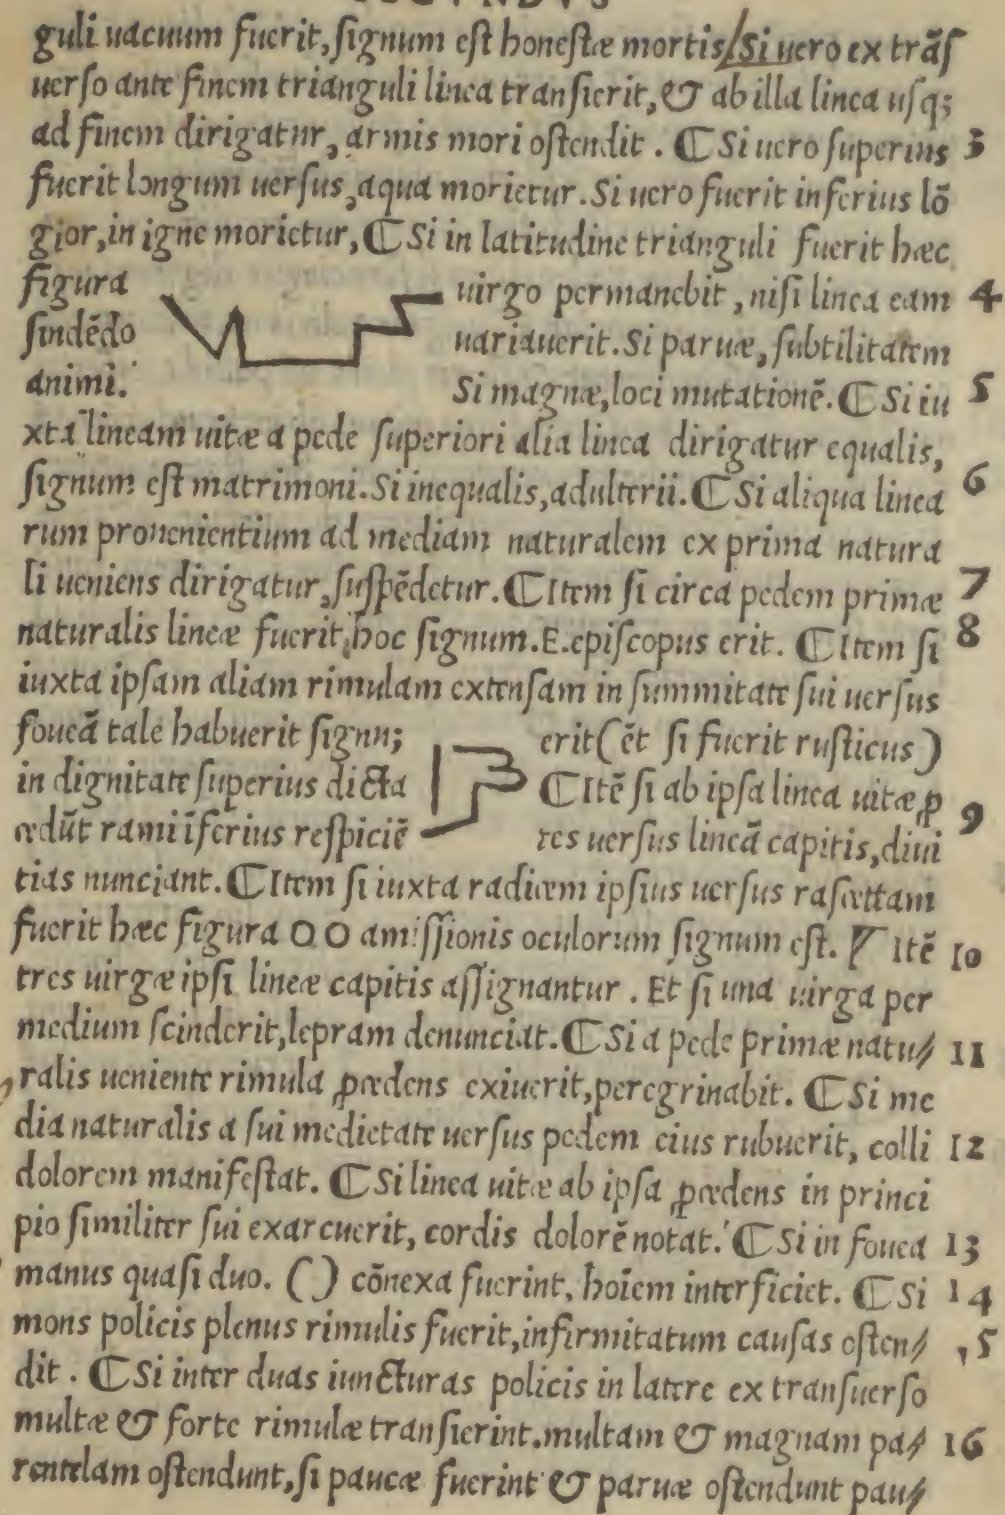 guli uacuum fuerit, signum est honestæ mortis/Si uero ex trãs
uerso ante finem trianguli linea transierit, & ab illa linea usq;
ad finem dirigatur, armis mori ostendit . ⁋ Si uero superius 3
fuerit longum uersus, aqua morietur. Si uero fuerit inferius lõ
gior, in igne morietur, ⁋ Si in latitudine trianguli fuerit hæc
figura uirgo permanebit, nisi linea eam 4
sindẽdo uariauerit. Si paruæ, subtilitatem
animi. Si magnæ, loci mutationẽ. ⁋ Si iu 5
xta lineam uitæ a pede superiori alia linea dirigatur equalis,
signum est matrimoni. Si inequalis, adulterii. ⁋ Si aliqua linea 6
rum prouenientium ad mediam naturalem ex prima natura
li ueniens dirigatur, suspẽdetur. ⁋ Item si circa pedem primæ 7
naturalis lineæ fuerit hoc signum. E. episcopus erit. ⁋ Item si 8
iuxta ipsam aliam rimulam extensam in summitate sui uersus
foueã tale habuerit signu; erit (ẽt si fuerit rusticus)
in dignitate superius dicta ⁋ Itẽ si ab ipsa linea uitæ ꝓ 9
cedũt rami ĩferius respiciẽ tes uersus lineã capitis, diui
tias nunciant. ⁋ Item si iuxta radicem ipsius uersus rascettam
fuerit hæc figura OO amissionis oculorum signum est. ⁋ Itẽ 10
tres uirgæ ipsi lineæ capitis assignantur . Et si una uirga per
medium scinderit, lepram denunciat. ⁋ Si a pede primæ natu⸗ 11
ralis ueniente rimula ꝓcedens exiuerit, peregrinabit. ⁋ Si me
dia naturalis a sui medietate uersus pedem eius rubuerit, colli 12
dolorem manifestat. ⁋ Si linea uitæ ab ipsa ꝓcedens in princi
pio similiter sui exarcuerit, cordis dolorẽ notat. ⁋ Si in fouea 13
manus quasi duo. () cõnexa fuerint, hoĩem interficiet. ⁋ Si 14
mons policis plenus rimulis fuerit, infirmitatum causas osten⸗ 15
dit . ⁋ Si inter duas iuncturas policis in latere ex transuerso
multæ & forte rimulæ transierint. multam & magnam pa⸗ 16
rentelam ostendunt, si paucæ fuerint & paruæ ostendunt pau⸗